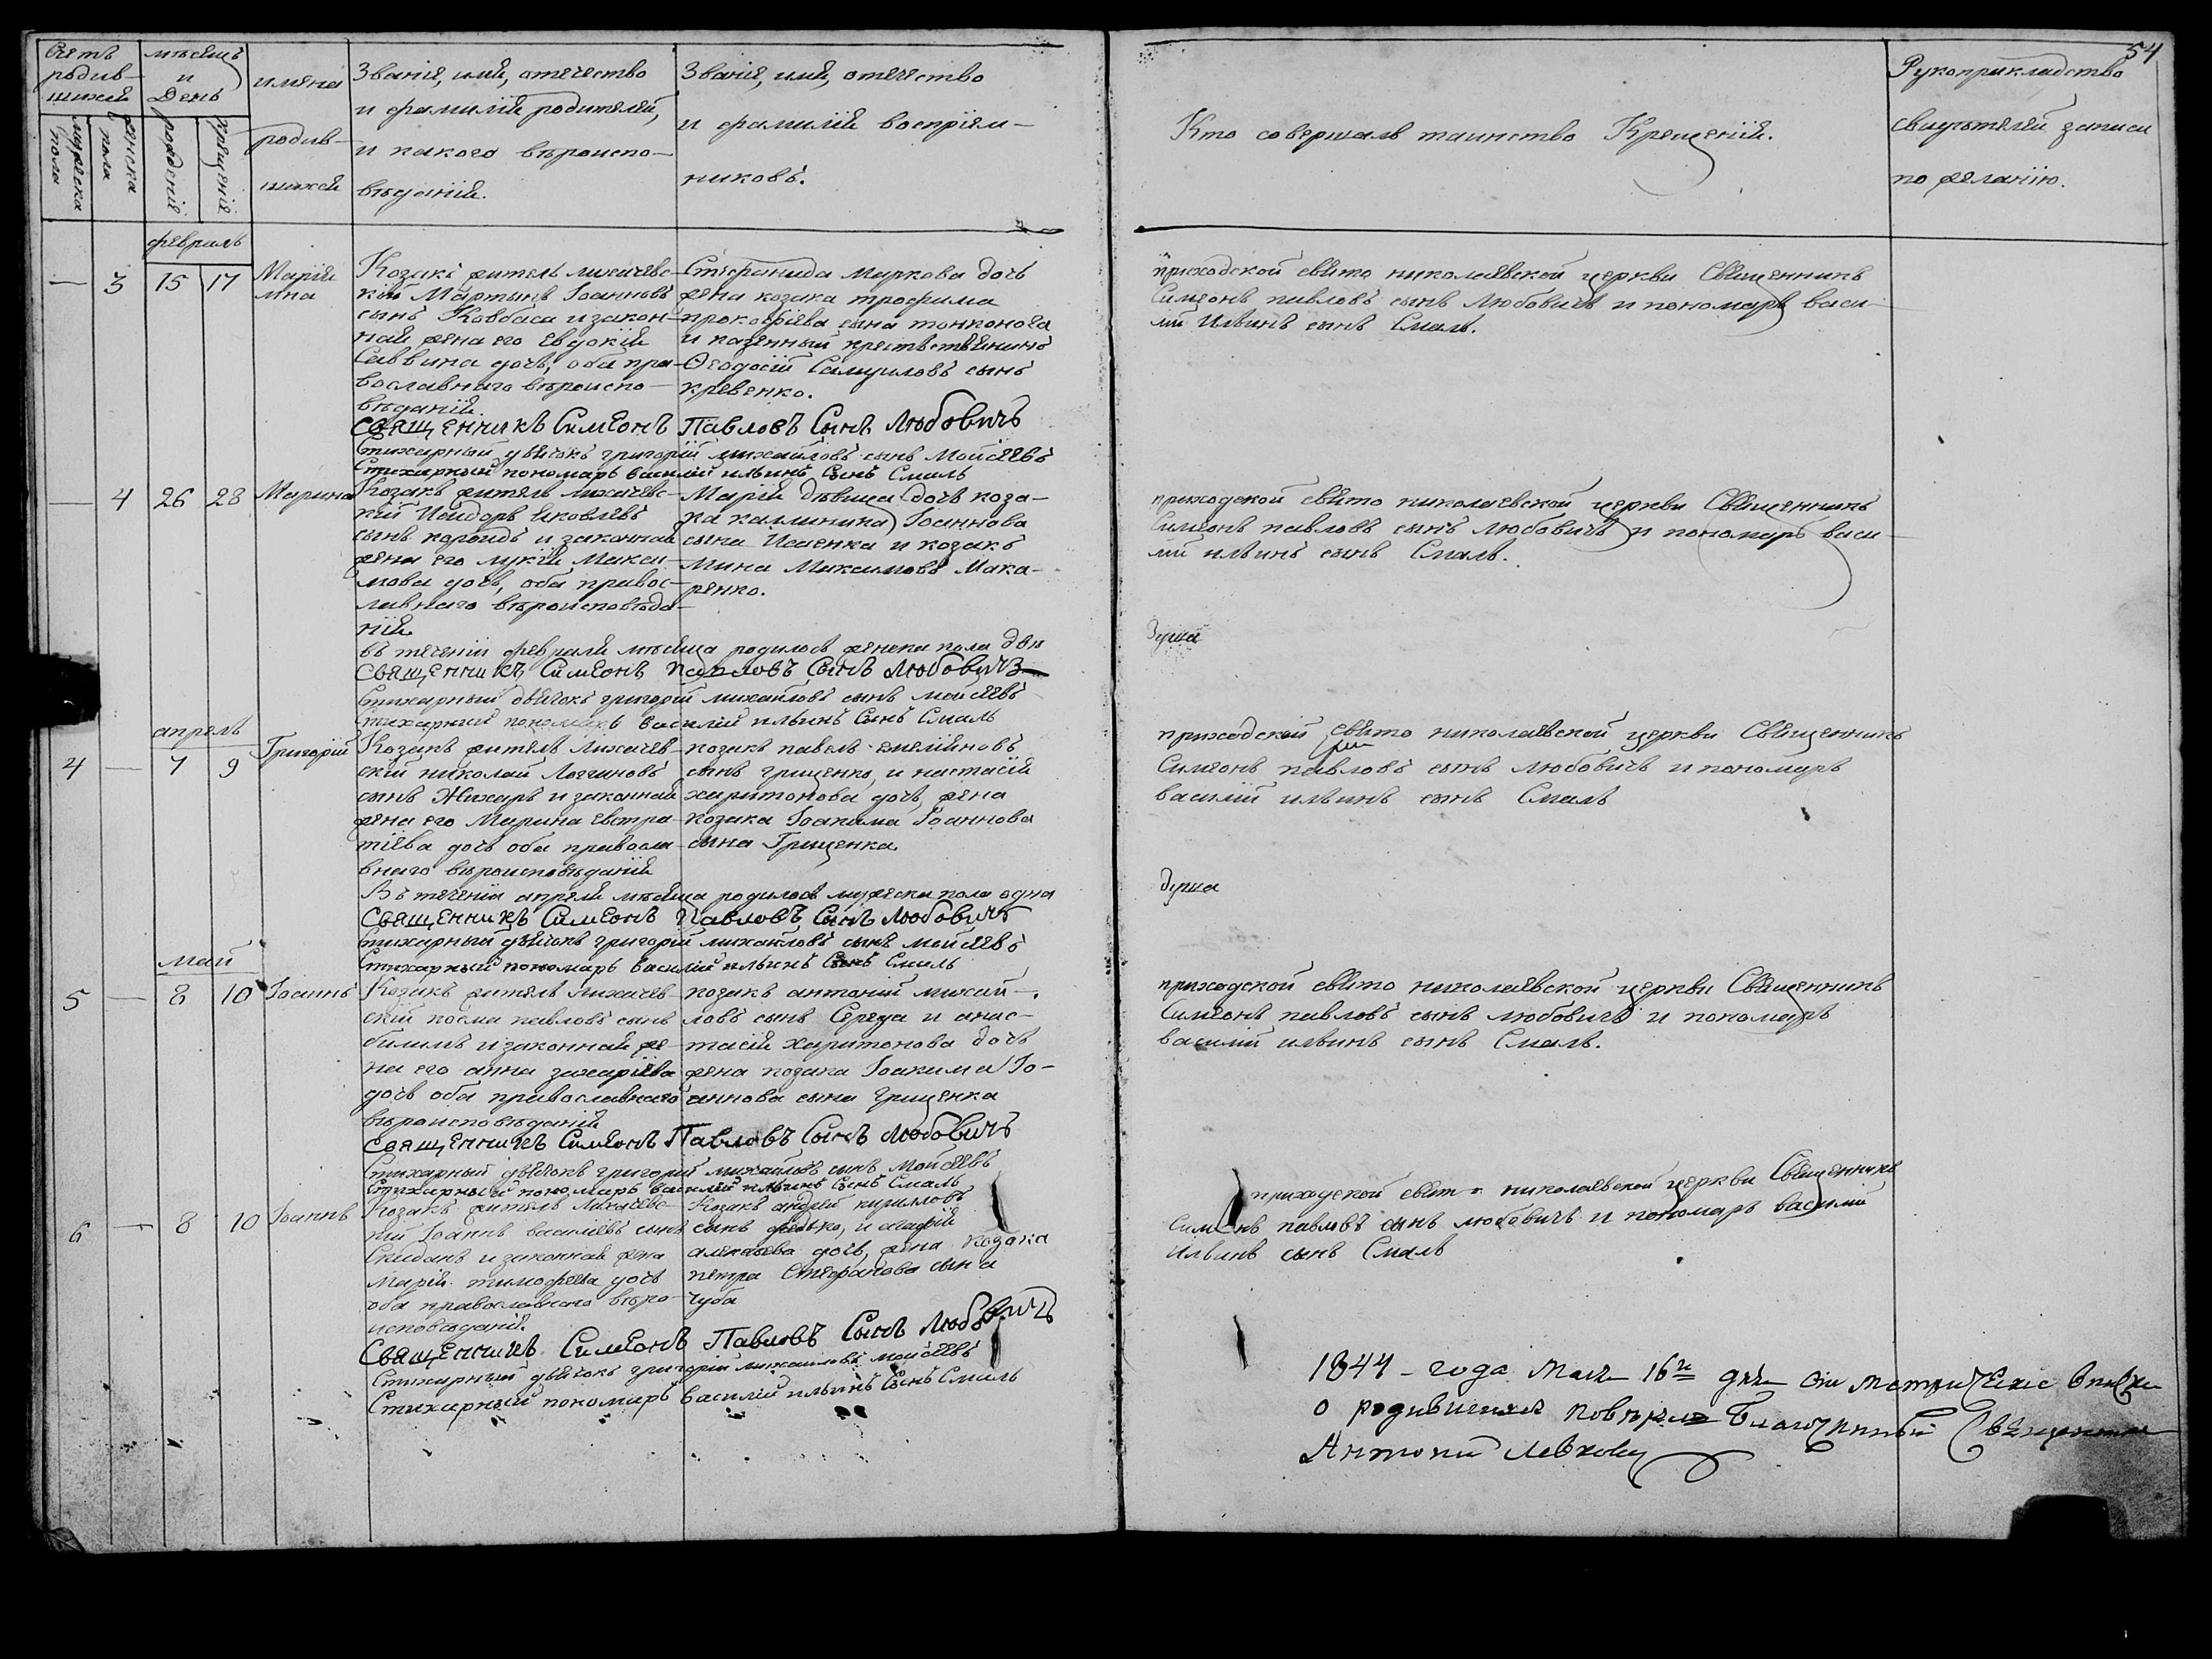 54
Счетъ родив-шихся
мѣсяцъ и День
имена родив-шихся
Званіе, имя, отечество и фамилія родителей, и какого вѣроиспо-вѣданія.
Званіе, имя, отечество и фамилія воспріем-никовъ.
Кто совершалъ таинство Крещенія.
Рукоприкладство свидѣтелей записи по желанію.
мужеска пола
женска пола
рожденія
крещенія
февраль
— 3 15 17
Козакъ житель лихачевс-
кій Мартынъ Іоанновъ
сынъ Ковбаса и закон-
ная жена его Евдокія
Саввина дочь, оба пра-
вославнаго вѣроиспо-
вѣданія.
Стефанида Маркова дочь
жена козака трофима
прокофіева сына тонконога
и казенный
Феодосій Самуиловъ сынъ
кревенко.
приходской свято николаевской церкви Священникъ
Симеонъ павловъ сынъ Любовичъ и пономарь васи-
лій Ильинъ сынъ Смаль.
Священникъ Симеонъ Павловъ Сынъ Любовичъ
Стихарный дьячокъ григорій михайловъ сынъ Мойсеевъ
Стихарный пономарь василій ильинъ Сынъ Смаль
— 4 26 28 Марина
Козакъ житель лихачевс-
кій Исидоръ Яковлевъ
сынъ и законная
жена его лукія Макси-
мова дочь, оба правос-
лавнаго вѣроисповѣда-
нія.
Марія дѣвица дочь коза-
ка каллиника Іоаннова
сына Исаенка и козакъ
Мина Максимовъ Мака-
ренко.
приходской свято николаевской церкви Священникъ
Симеонъ павловъ сынъ любовичъ и пономарь васи-
лій ильинъ сынъ Смаль.
въ теченіи февраля мѣсяца родилось женска пола двѣ
души
Священникъ Симеонъ Павловъ Сынъ Любовичъ
Стихарный дьячокъ григорій михайловъ сынъ мойсеевъ
Стихарный пономарь василій ильинъ Сынъ Смаль
апрель
4 — 7 9 Григорій
Козакъ житель Лихачев-
скій николай Логгиновъ
сынъ Жихарь и законная
жена его Марина Евстра-
тіева дочь оба правосла-
внаго вѣроисповѣданія
козакъ павелъ емеліяновъ
сынъ грищенко, и настасія
харитонова дочь, жена
козака Іоакима Іоаннова
сына Грищенка
приходской свято николаевской церкви Священникъ
Симеонъ павловъ сынъ любовичъ и пономарь
василій ильинъ сынъ Смаль
Въ теченіи апреля мѣсяца родилось мужеска пола одна
душа
Священникъ Симеонъ Павловъ Сынъ Любовичъ
Стихарный дьячокъ григорій михайловъ сынъ мойсеевъ
Стихарный пономарь василій ильинъ Сынъ Смаль
май
5 — 8 10 Іоаннъ
Козакъ житель Лихачев-
скій косма павловъ сынъ
и законная же-
на его анна захаріева
дочь оба православнаго
вѣроисповѣданія
козакъ антоній михай-
ловъ сынъ Середа и анас-
тасія харитонова дочь
жена козака Іоакима Іо-
аннова сына грищенка
приходской свято николаевской церкви Священникъ
Симеонъ павловъ сынъ любовичъ и пономарь
василій ильинъ сынъ Смаль.
Священникъ Симеонъ Павловъ Сынъ Любовичъ
Стихарный дьячокъ григорій михайловъ сынъ Мойсеевъ
Стихарный пономарь василій ильинъ Сынъ Смаль
6 — 8 10 Іоаннъ
Козакъ житель Лихачевс-
кій Іоаннъ василіевъ сынъ
Скиданъ и законная жена
Марія тимофеева дочь
оба православнаго вѣро-
исповѣданія.
Козакъ андрей кириловъ
сынъ и агафія
алексіева дочь, жена козака
петра Стефанова сына
чуба
приходской свято николаевской церкви Священникъ
Симеонъ павловъ сынъ любовичъ и пономарь василій
ильинъ сынъ Смаль
Священникъ Симеонъ Павловъ Сынъ Любовичъ
Стихарный дьячокъ григорій михайловъ мойсеевъ
Стихарный пономарь василій ильинъ Сынъ Смаль
1844 года Мая 16 дня
о родившихся повѣрялъ Благочинный Священникъ
Антоній